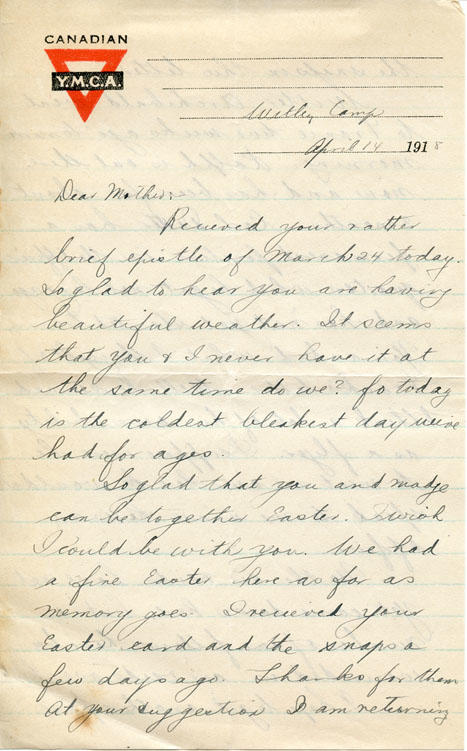 CANADIAN
Y.M.C.A.
Witley Camp
April 14 1918
Dear Mother:
Recieved your rather
brief epistle of March 24 today.
So glad to hear you are having
beautiful weather. It seems
that you & I never have it at
the same time do we? fo today
is the coldest bleakest day weive
had for ages.
So glad that you and madge
can be together Easter. I wish
I could be with you. We had
a fine Easter here as far as
memory goes. I recieved your
Easter card and the snaps a
few days ago. Thanks for them
At your suggestion I am returning